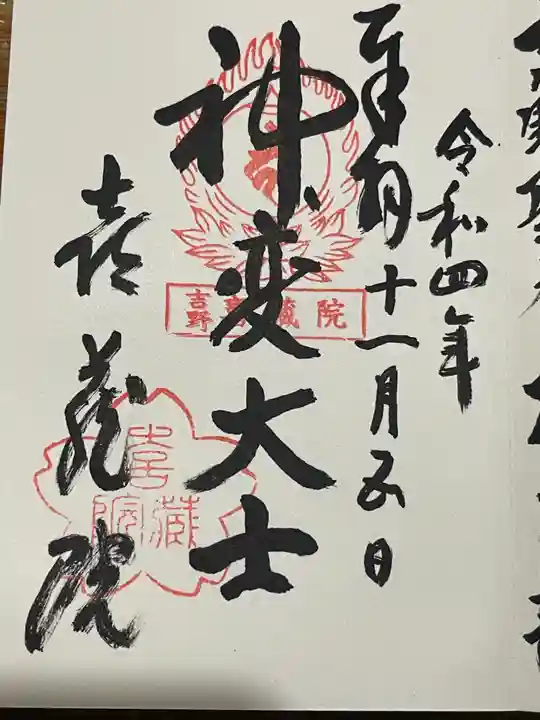 令和四年
奉拝 十一月五日
神変大士
喜蔵院
吉野 喜蔵院
喜蔵院